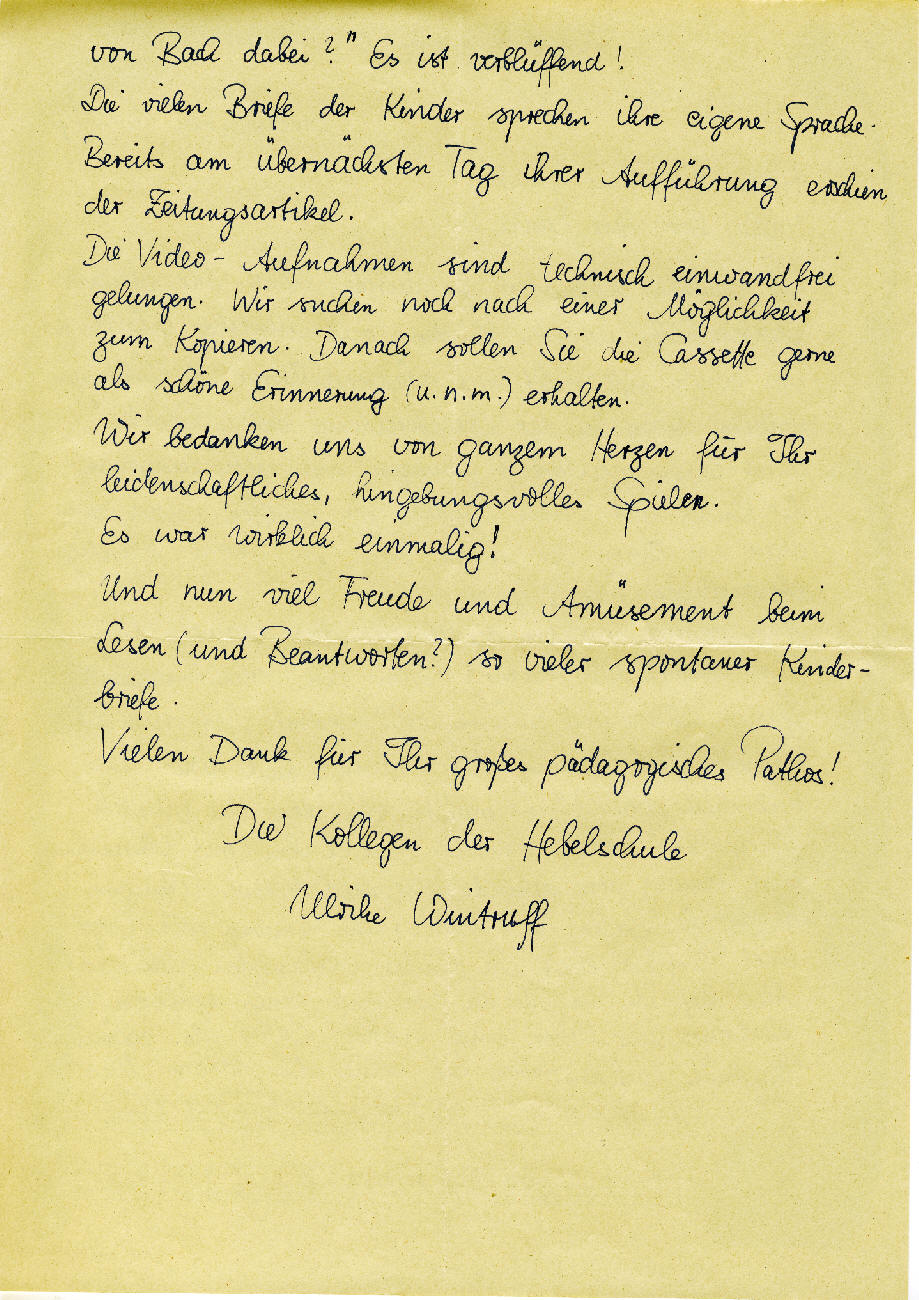 von Bach dabei?" Es ist verblüffend!
Die vielen Briefe der Kinder sprechen ihre eigene Sprache.
Bereits am übernächsten Tag ihrer Aufführung erschien
der Zeitungsartikel.
Die Video-Aufnahmen sind technisch einwandfrei
gelungen. Wir suchen noch nach einer Möglichkeit
zum Kopieren. Danach sollen Sie die Cassette gerne
als schöne Erinnerung (u.n.m.) erhalten.
Wir bedanken uns von ganzem Herzen für Ihr
leidenschaftliches, hingebungsvolles Spielen.
Es war wirklich einmalig!
Und nun viel Freude und Amüsement beim
Lesen (und Beantworten?) so vieler spontaner Kinder-
briefe.
Vielen Dank für Ihr großes pädagogisches Pathos!
Die Kollegen der Hebelschule
Ulrike Wintruff